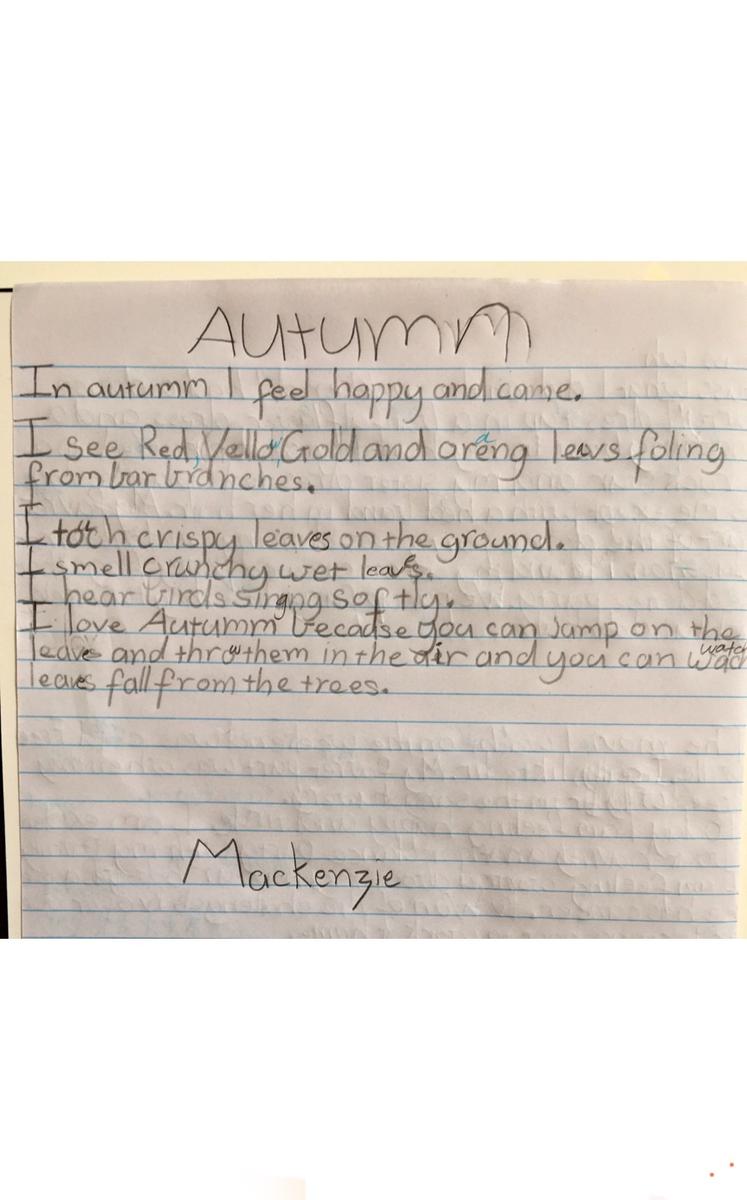 Autumm
In autumm I feel happy and came.
I see Red, Yellow, Gold and oreng leavs foling
from bar branches.
I toch crispy leaves on the ground.
I smell crunchy wet leaves.
I hear birds singing softly.
I love Autumm because you can Jump on the
leaves and throw them in the air and you can watch wach
leaves fall from the trees.
Mackenzie